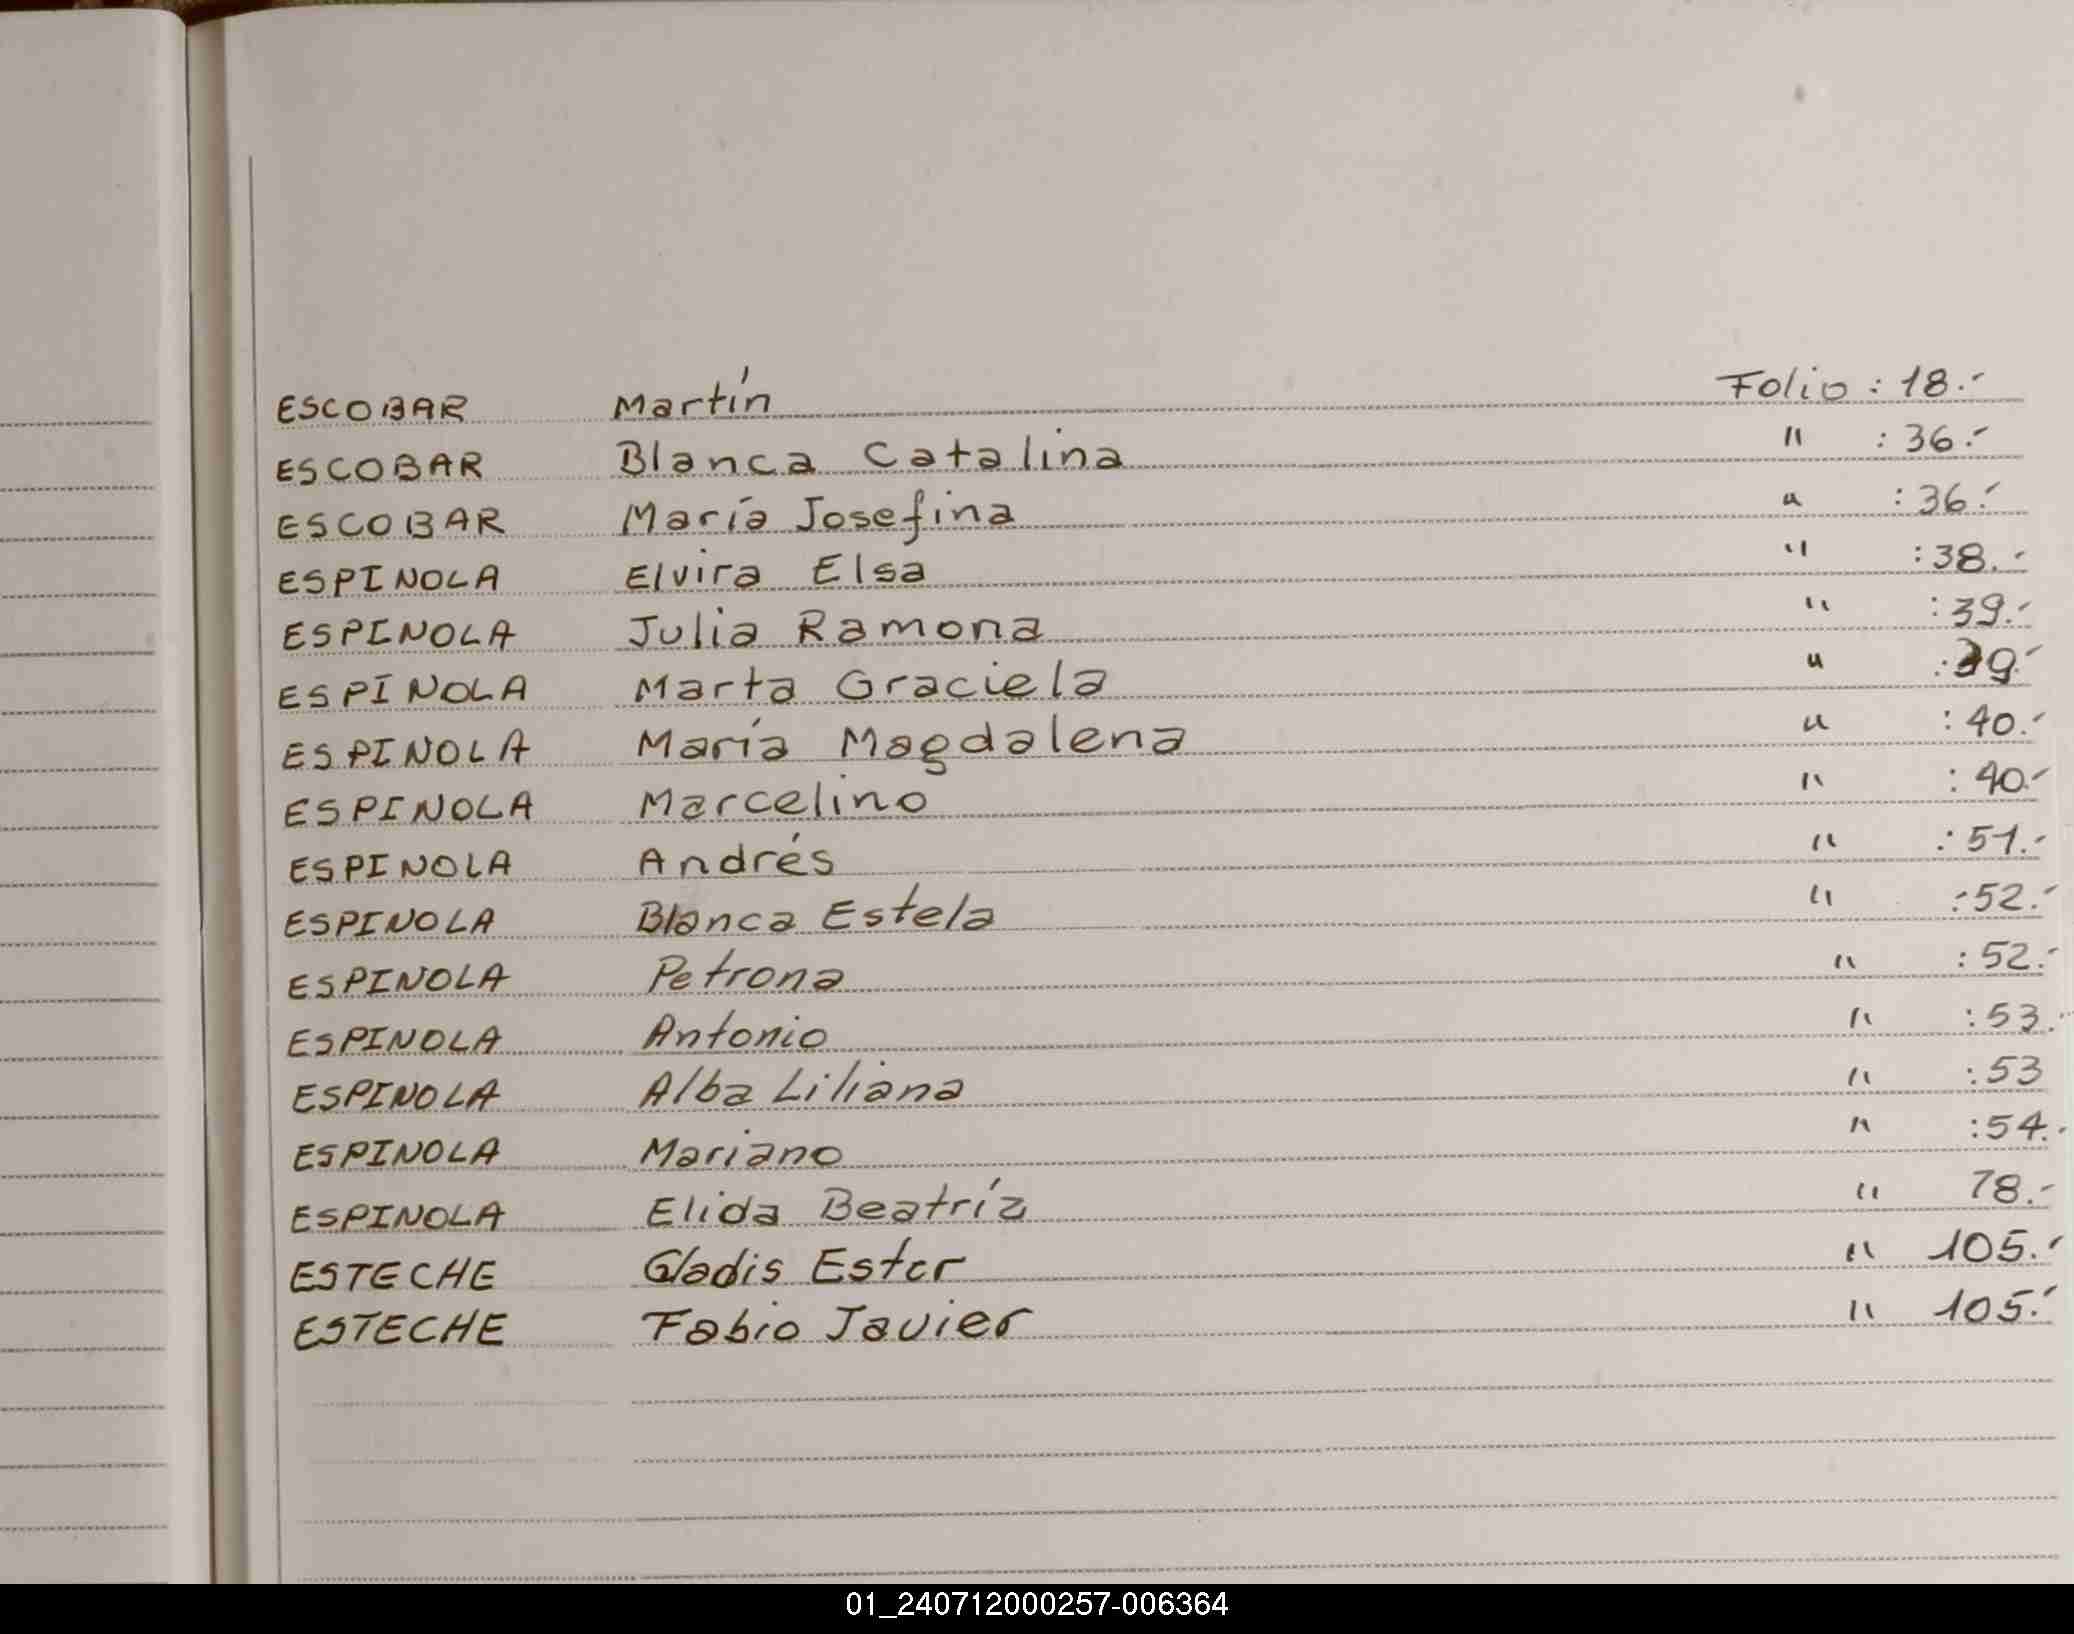 ESCOBAR Martín Folio : 18.-
ESCOBAR Blanca Catalina " : 36.-
ESCOBAR María Josefina " : 36.-
ESPINOLA Elvira Elsa " : 38.-
ESPINOLA Julia Ramona " : 39.-
ESPINOLA Marta Graciela " : 39.-
ESPINOLA María Magdalena " : 40.-
ESPINOLA Marcelino " : 40.-
ESPINOLA Andrés " : 51.-
ESPINOLA Blanca Estela " : 52.-
ESPINOLA Petrona " : 52.-
ESPINOLA Antonio " : 53.-
ESPINOLA Alba Liliana " : 53
ESPINOLA Mariano " : 54.-
ESPINOLA Elida Beatríz " 78.-
ESTECHE Gladis Ester " 105.-
ESTECHE Fabio Javier " 105.-
01_240712000257-006364